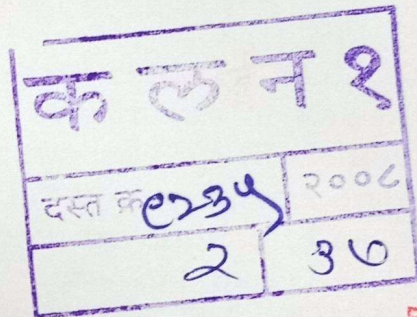 क ल न १
दस्त क्र ९२३५ २००८
२ ३७